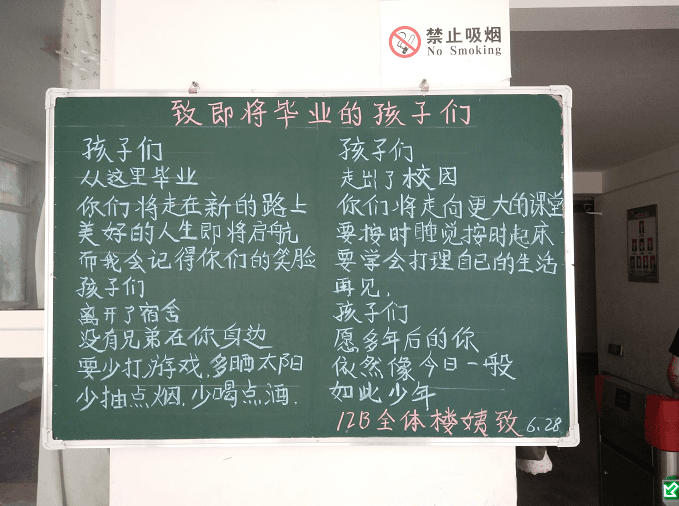 禁止吸烟
No Smoking
致即将毕业的孩子们
孩子们
从这里毕业
你们将走在新的路上
美好的人生即将启航
而我会记得你们的笑脸
孩子们
离开了宿舍
没有兄弟在你身边
要少打游戏,多晒太阳
少抽点烟,少喝点酒.
孩子们
走出了校园
你们将走向更大的课堂
要按时睡觉按时起床
要学会打理自己的生活
再见,
孩子们
愿多年后的你
依然像今日一般
如此少年
12B全体楼姨致 6.28